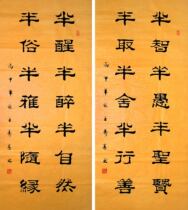 半智半愚半聖賢
半取半舍半行善
半醒半醉半自然
半俗半雅半隨緣